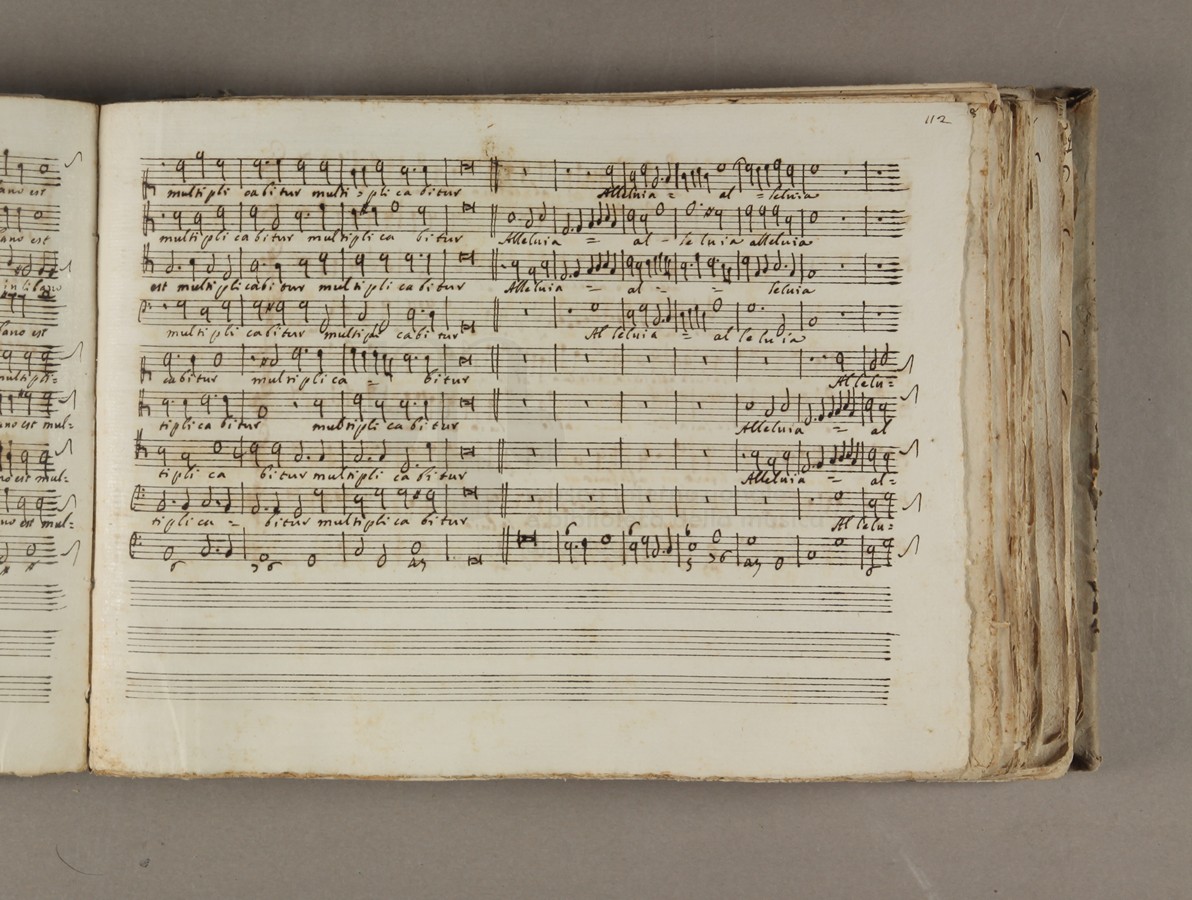 112
multipli cabitur multi = pli ca bitur Alleluia = al = leluia
ano est multipli cabitur multipli ca bitur Alleluia = al - le luia alleluia
in libano est multiplicabitur multipli cabitur Alleluia = al = = leluia
bano est multipli cabitur multipli cabi tur Al leluia = al le lu ia
multipli= cabitur multiplica = bitur Al lelu=
ano est mul= tiplica bitur multipli ca bitur Alleluia = al
no est mul= tipli ca bitur multipli ca bitur Alleluia = al=
no est mul= tiplica = bitur multiplica bitur Al lelu=
6 6 6
6 76 43 5 76 43 6